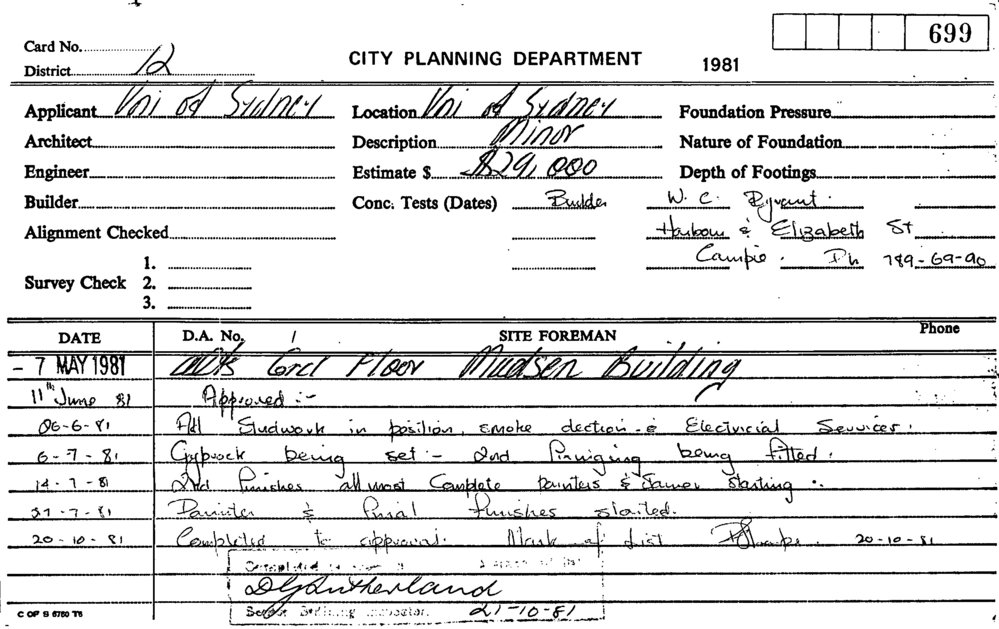 699
Card No.
District 12
CITY PLANNING DEPARTMENT 1981
Applicant Uni of Sydney Location Uni of Sydney Foundation Pressure
Architect Description Minor Nature of Foundation
Engineer Estimate $ $29,000 Depth of Footings
Builder Conc. Tests (Dates) Builder W. C.
Alignment Checked Harbour & Elizabeth St
Campsie. Ph 789-69-90
1.
Survey Check 2.
3.
DATE D.A. No. 1 SITE FOREMAN Phone
- 7 MAY 1981 Grd Floor Madsen Building
11th June 81 Approved :-
06-6-81 All Studwork in position, smoke dection & Electricial Services.
6-7-81 Gyprock being set - 2nd being fitted.
14-7-81 2nd finishes all most Complete painters & starting
-7-81 Painter & final finishes started.
20-10-81 Completed to approval. 20-10-81
Completed
D G Sutherland
Senior Building Inspector. 21-10-81
C OF S 6760 T6